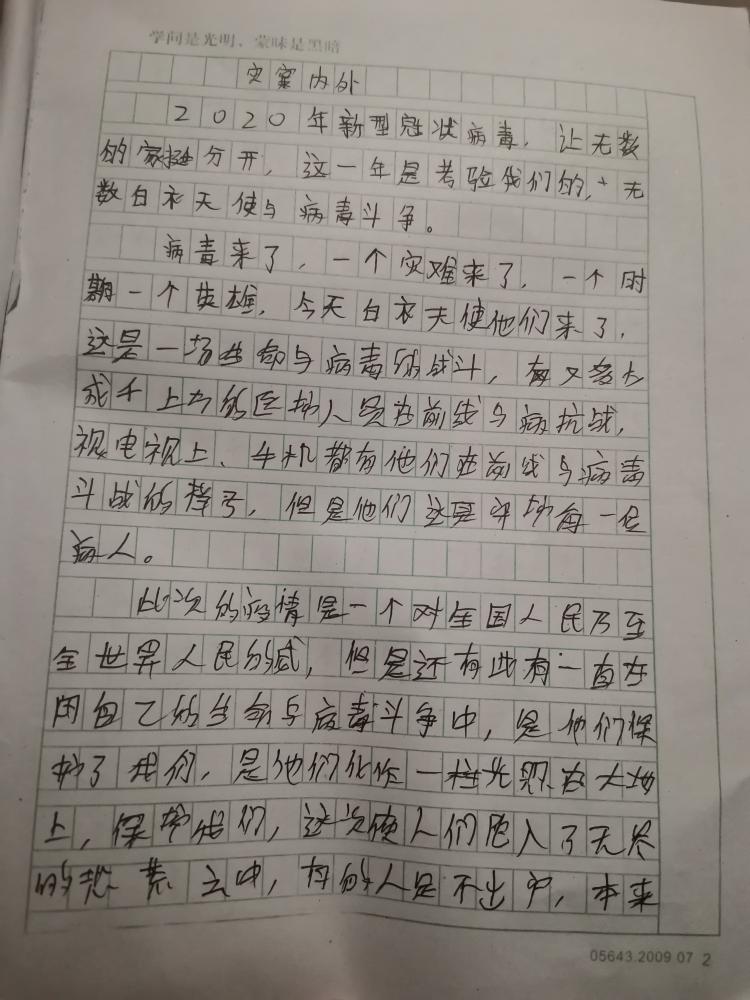 学问是光明，蒙昧是黑暗
灾案内外
2020年新型冠状病毒，让无数
的家挺分开，这一年是考验我们的，无
数白衣天使与病毒斗争。
病毒来了，一个灾难来了，一个时
期一个英雄，今天白衣天使他们来了，
这是一场生命与病毒的战斗，每又多少
成千上万的医护人员在前线与病抗战，
视电视上、手机都有他们在前线与病毒
斗战的样子，但是他们这是守护每一位
病人。
此次的疫情是一个对全国人民乃至
全世界人民的感，但是还有些有一直在
用自己的生命与病毒斗争中，是他们保
护了我们，是他们化作一柱光照在大地
上，保护我们，这次使人们陷入了无尽
的恐慌云中，有的人足不出户，本来
05643.2009.07 2